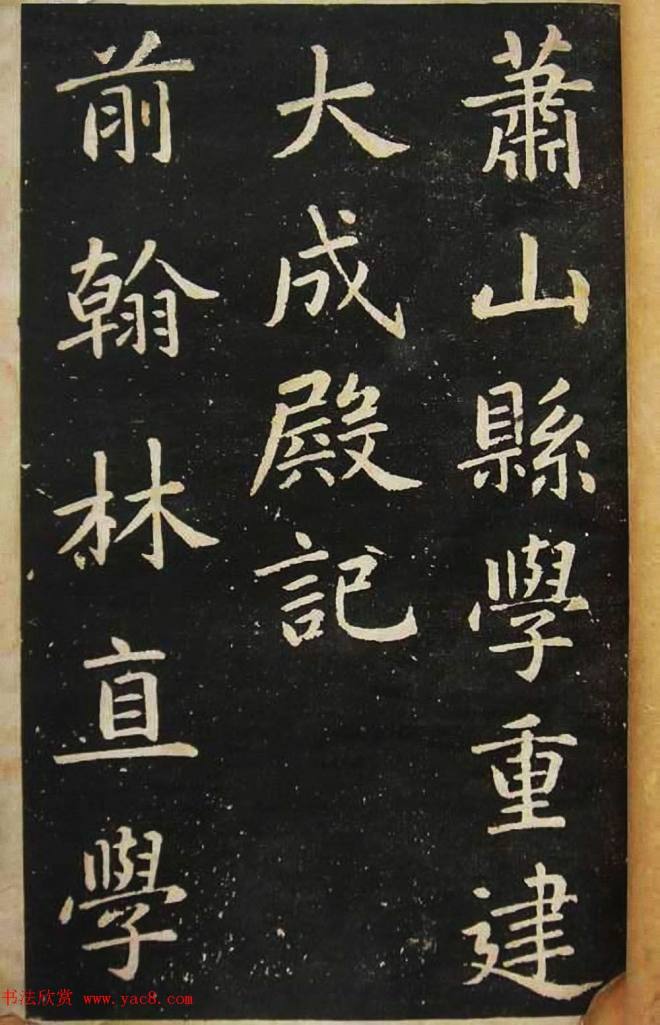 蕭山縣學重建
大成殿記
前翰林直學
书法欣赏 www.yac8.com